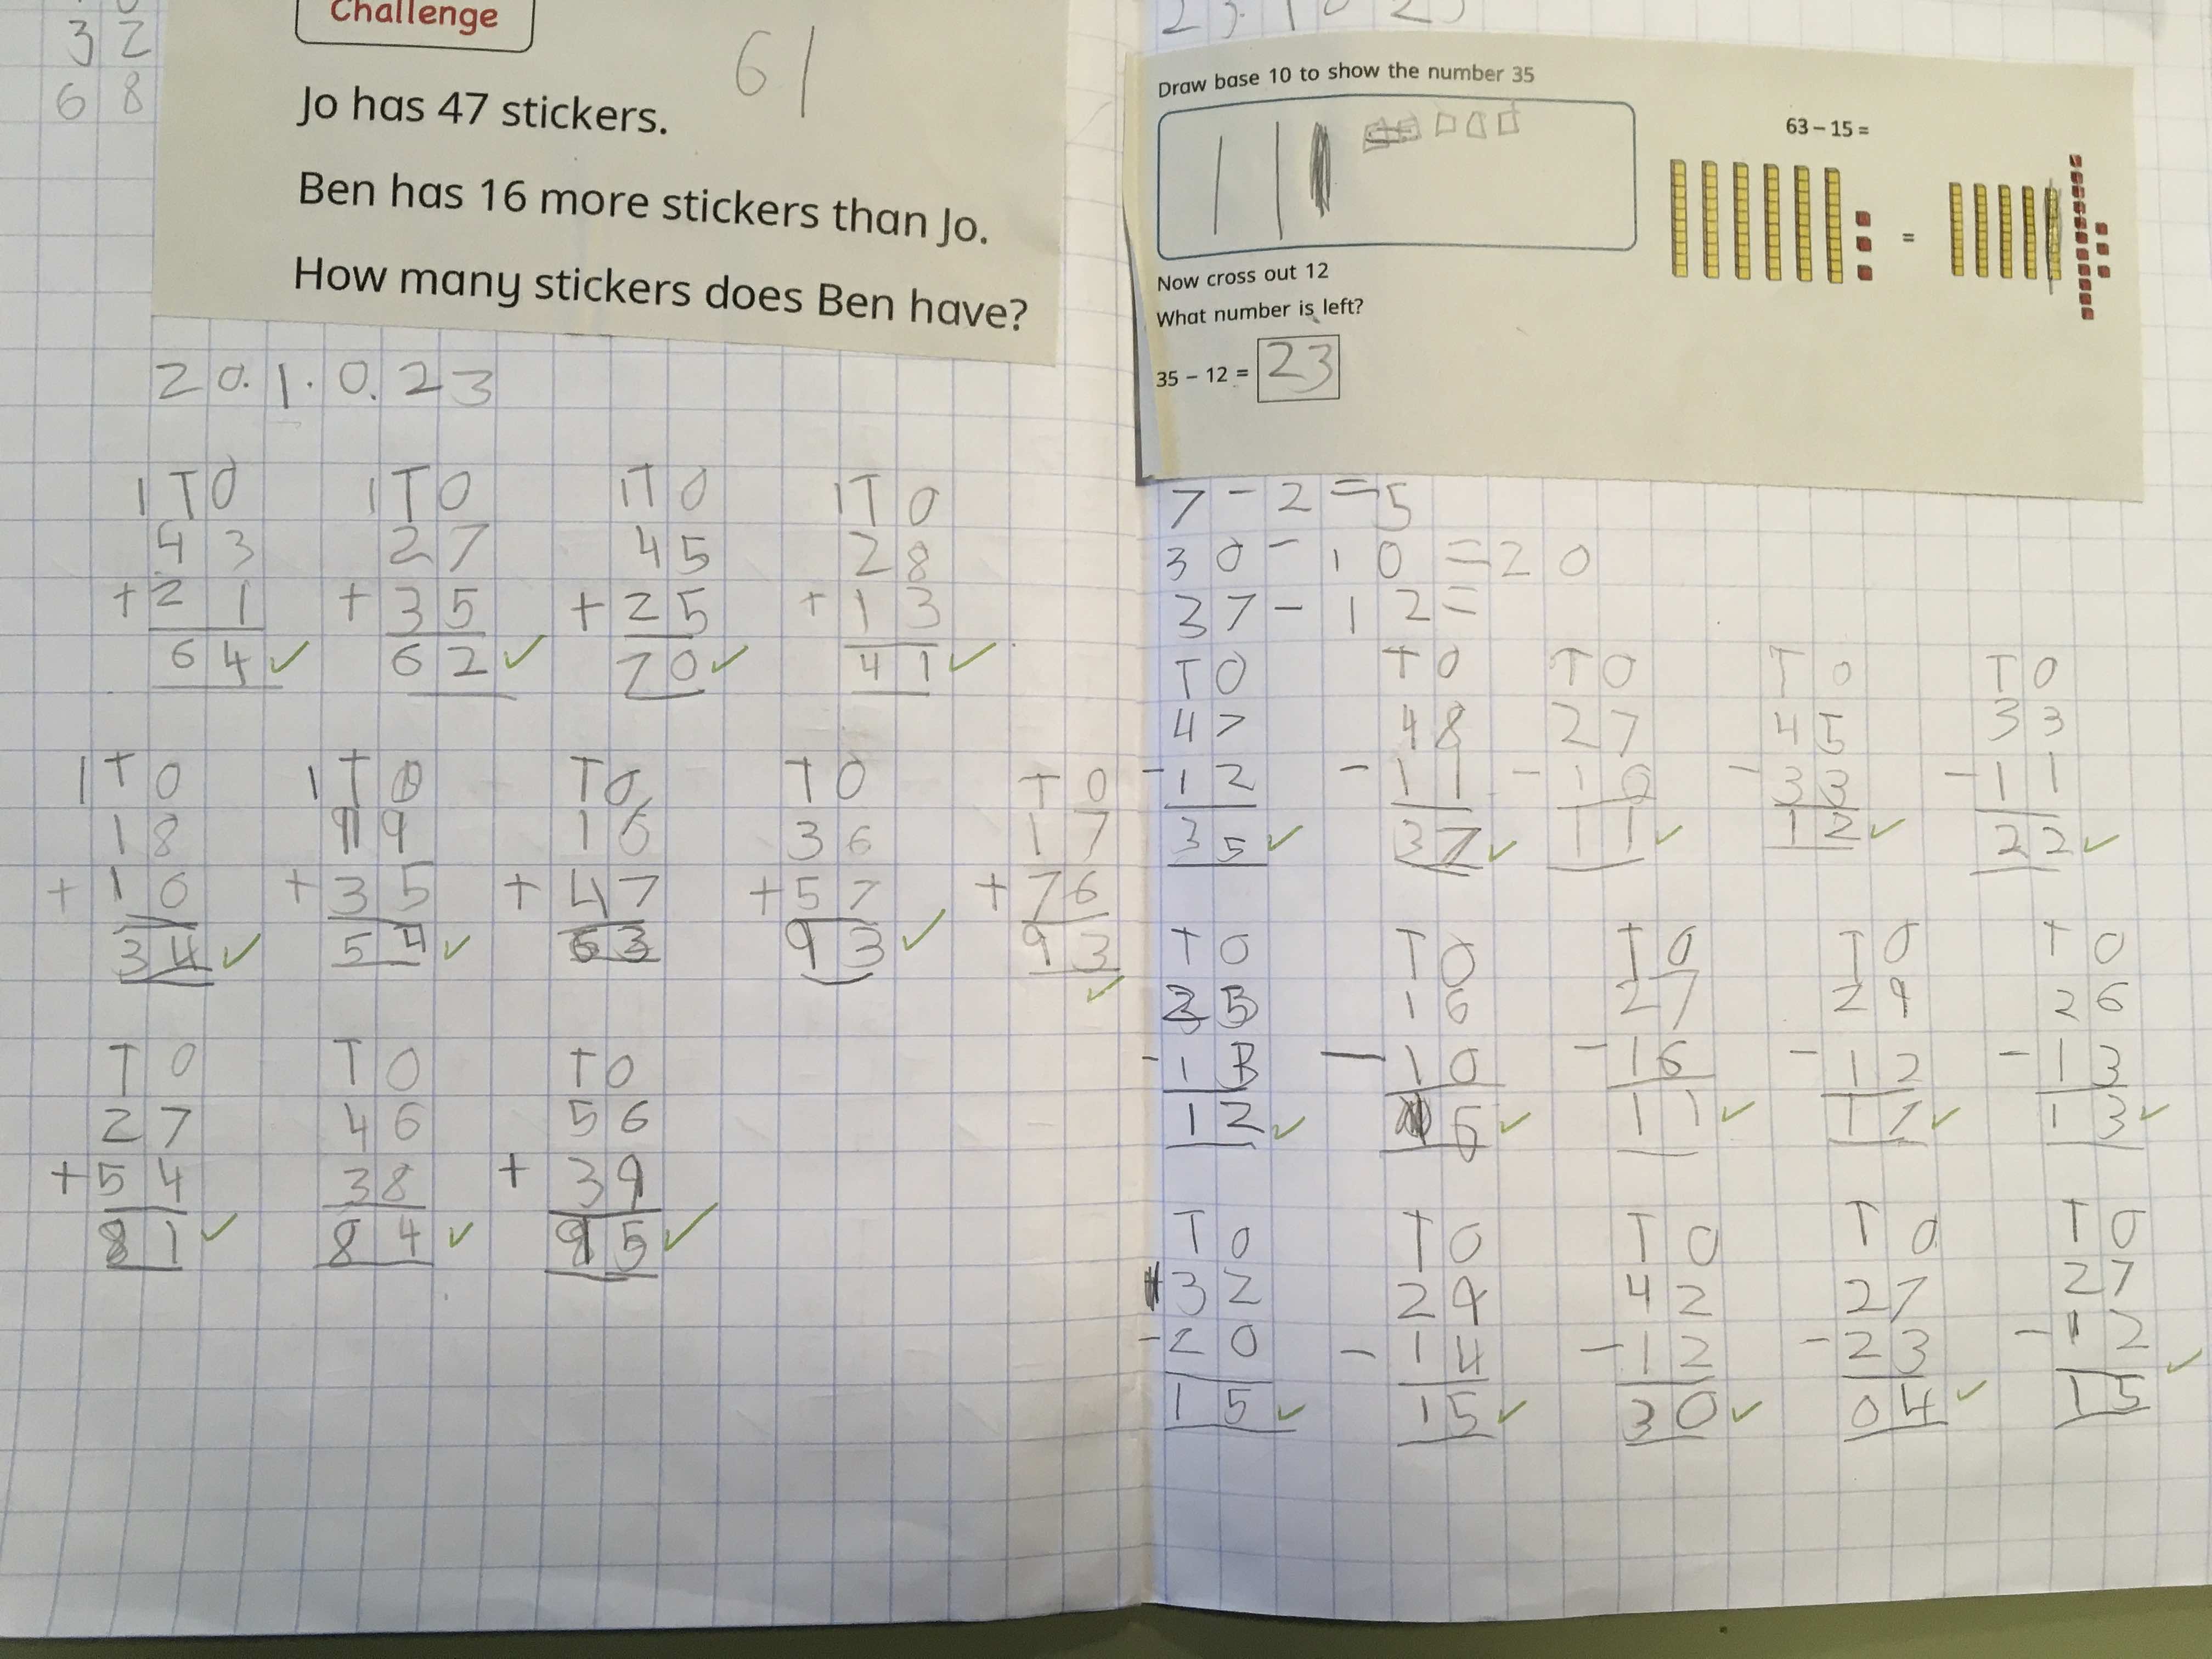 3 2
6 8
Challenge
61
Jo has 47 stickers.
Ben has 16 more stickers than Jo.
How many stickers does Ben have?
20.1.0.23
1TO 1TO 1TO 1TO
43 27 45 28
+21 +35 +25 +13
64 ✓ 62 ✓ 70 ✓ 41 ✓
1TO 1TO TO TO TO
18 19 16 36 17
+16 +35 +47 +57 +76
34 ✓ 54 ✓ 63 93 ✓ 93 ✓
TO TO TO
27 46 56
+54 38 +39
81 ✓ 84 ✓ 95 ✓
Draw base 10 to show the number 35
63 – 15 =
=
Now cross out 12
What number is left?
35 – 12 = 23
7 - 2 = 5
30 - 10 = 20
37 - 12 =
TO TO TO TO TO
47 48 27 45 33
-12 -11 -16 -33 -11
35 ✓ 37 ✓ 11 ✓ 12 ✓ 22 ✓
TO TO TO TO TO
25 16 27 29 26
-13 -10 -16 -12 -13
12 ✓ 6 ✓ 11 ✓ 17 ✓ 13 ✓
TO TO TO TO TO
32 29 42 27 27
-20 -14 -12 -23 -12
15 ✓ 15 ✓ 30 ✓ 04 ✓ 15 ✓